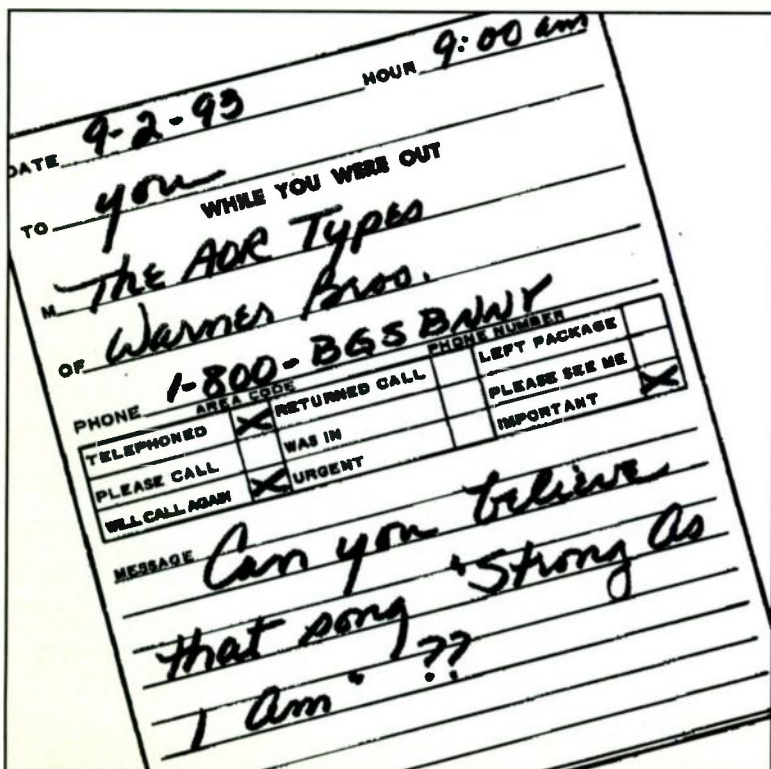 DATE 9-2-93 HOUR 9:00 am
TO you
WHILE YOU WERE OUT
M The AOR Types
OF Warner Bros.
PHONE 1-800-BGS BNNY
AREA CODE PHONE NUMBER
TELEPHONED X RETURNED CALL LEFT PACKAGE
PLEASE CALL WAS IN PLEASE SEE ME
WILL CALL AGAIN X URGENT IMPORTANT X
MESSAGE Can you believe
that song "Strong As
I Am" ??